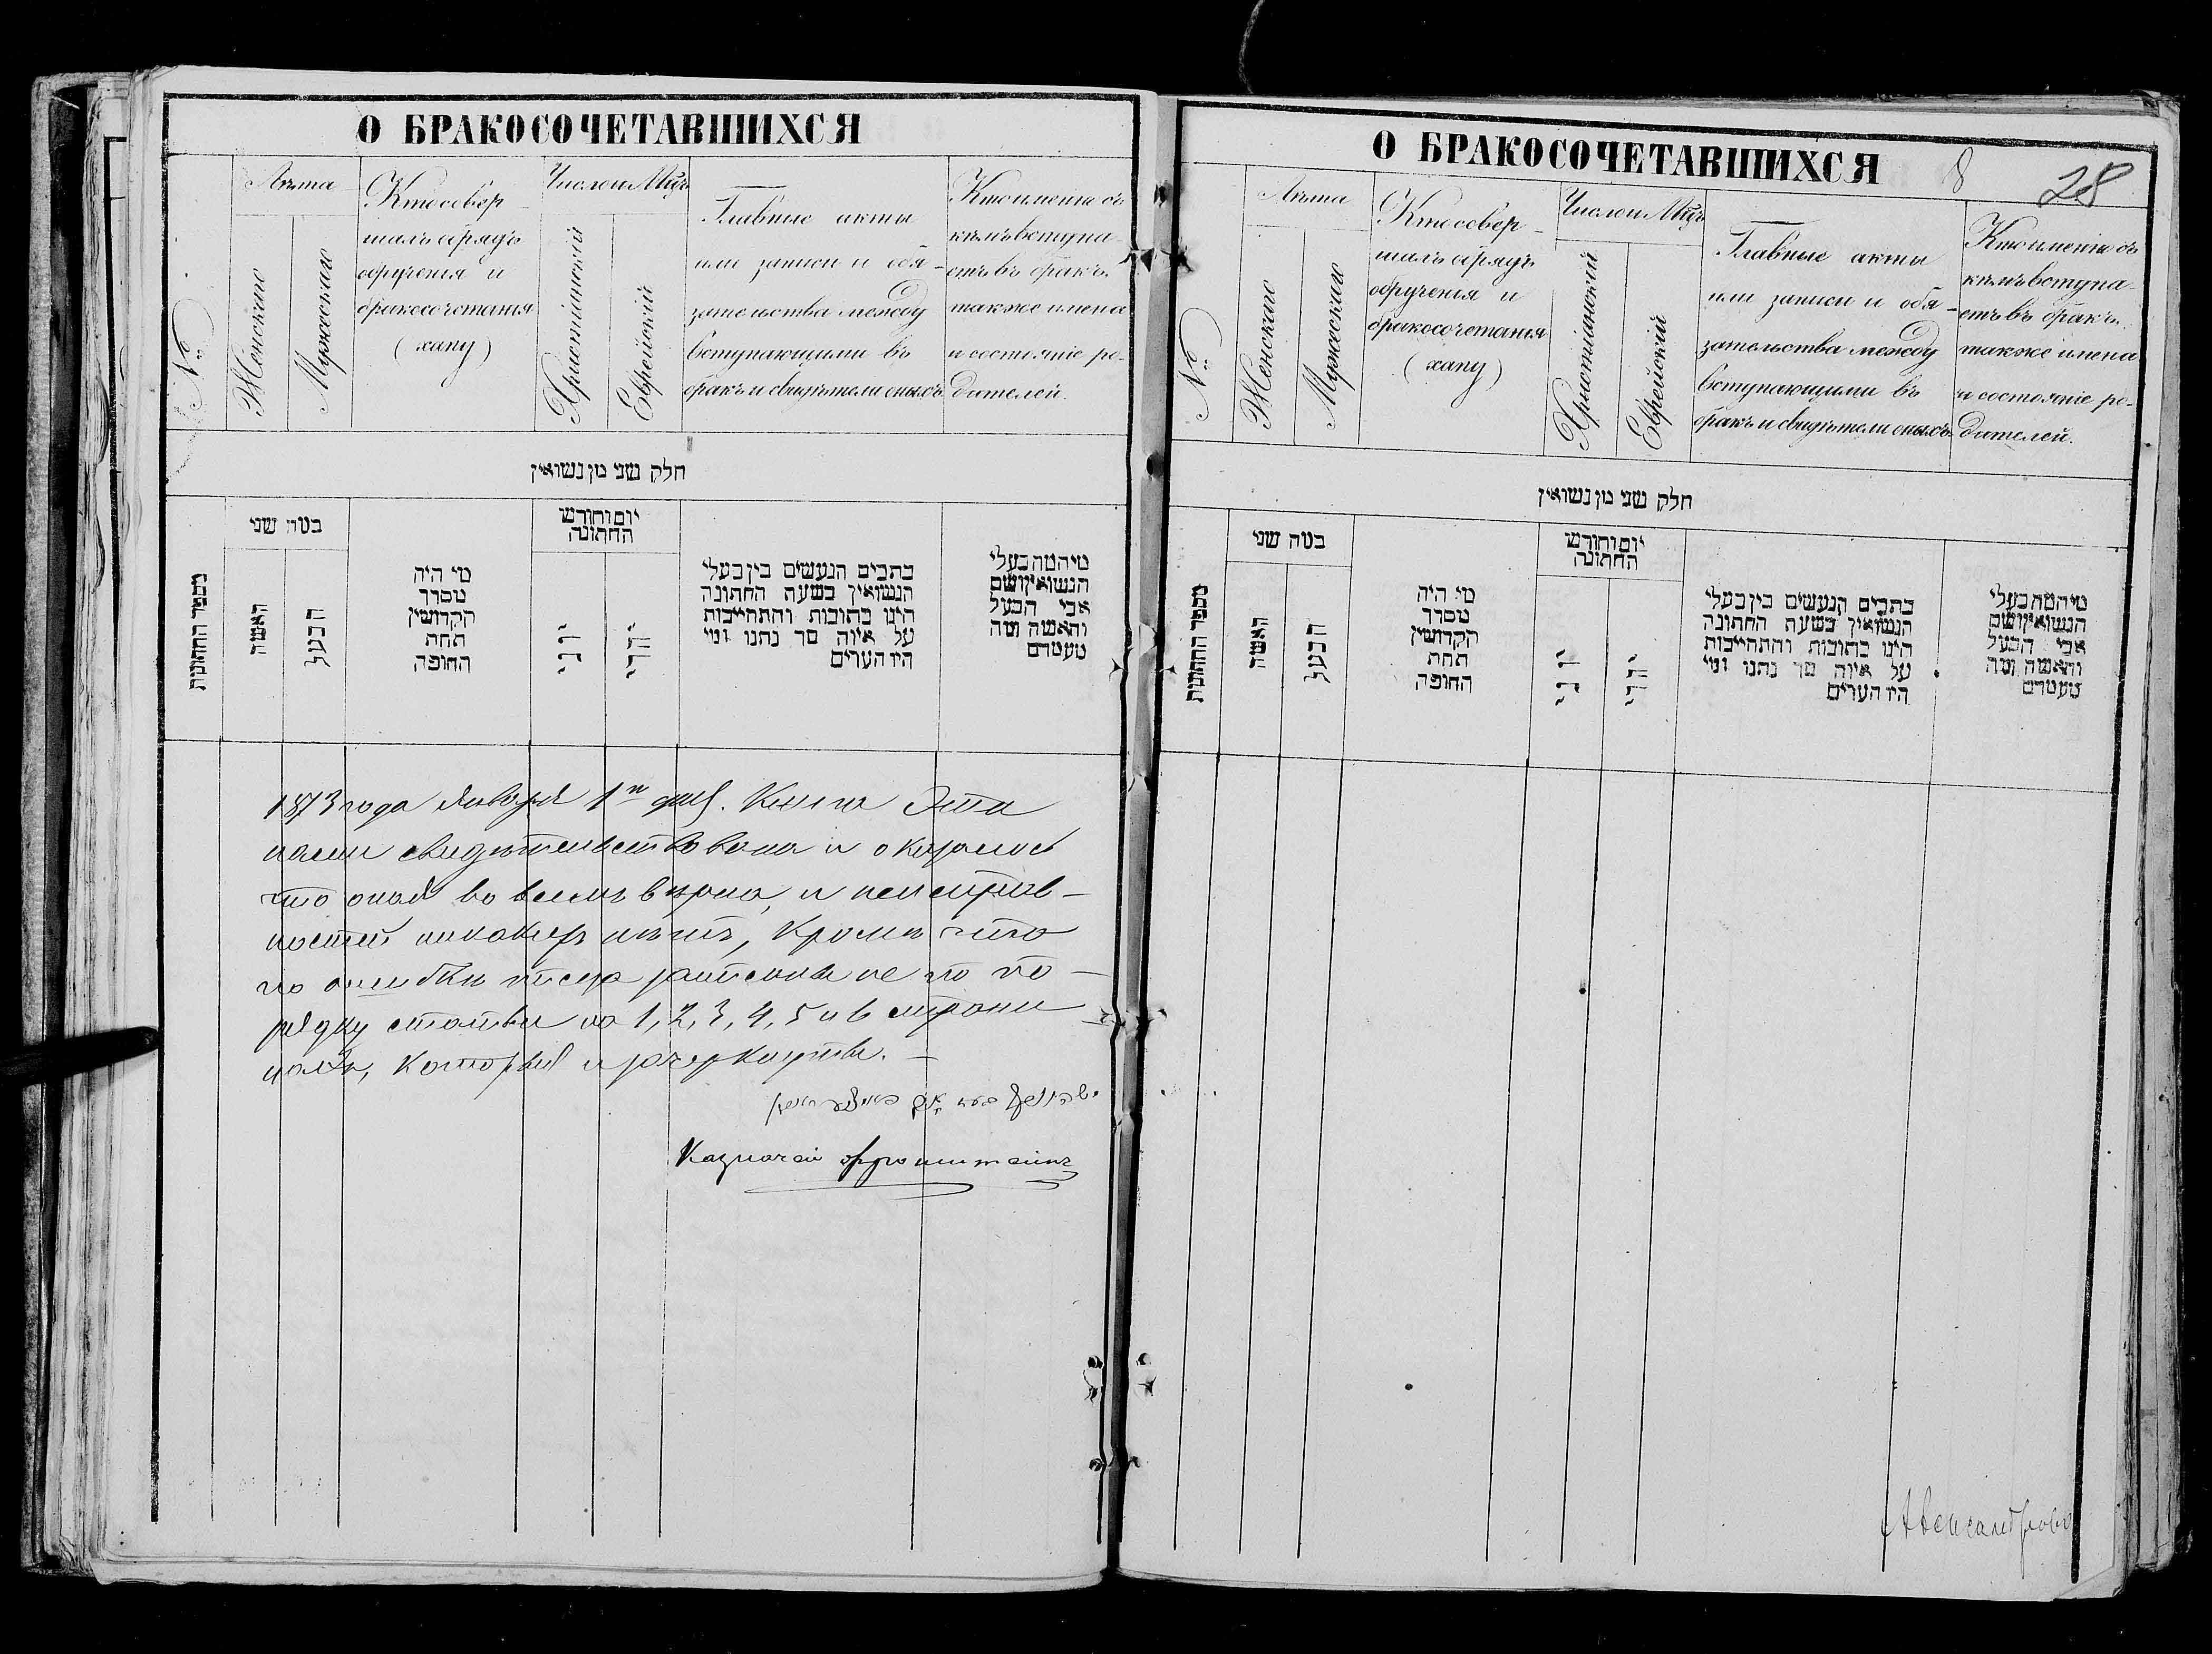 О БРАКОСОЧЕТАВШИХСЯ
№
Лѣта
Женскаго
Мужескаго
Кто совер-
шалъ обрядъ
обрученія и
бракосочетанія
(хапу)
Число и Мѣц.
Христіанскій
Еврейскій
Главные акты
или записи и обя-
зательства между
вступающими въ
бракъ и свидѣтели оныхъ
Кто именно съ
кѣмъ вступа-
етъ въ бракъ,
также имена
и состояніе ро-
дителей.
חלק שני מן נשואין
מספר החתונות
במה שני
האשה
הבעל
מי היה
מסדר
הקדושין
תחת
החופה
יום וחורש
החתונה
יוני
יהדי
כתבים הנעשים בין בעלי
הנשואין בשעת החתונה
היינו כתובות והתחייבות
על איזה סך נתנו ומי
היו העדים
מי המה בעלי
הנשואין ושם
אבי הבעל
והאשה ומה
מעמדם
1873 года Января 1го дня. Книга Эта
нами свидѣтельствована и оказалось
что оная во всемъ вѣрна, и неисправ-
ностей никакихъ нѣтъ, кромѣ что
по ошибки писца записаны не по по-
рядку статьи на 1, 2, 3, 4, 5 и 6 страни-
цахъ, которыя и зачеркнуты. —
Казначей
О БРАКОСОЧЕТАВШИХСЯ
8
28
№
Лѣта
Женскаго
Мужескаго
Кто совер-
шалъ обрядъ
обрученія и
бракосочетанія
(хапу)
Число и Мѣц.
Христіанскій
Еврейскій
Главные акты
или записи и обя-
зательства между
вступающими въ
бракъ и свидѣтели оныхъ
Кто именно съ
кѣмъ вступа-
етъ въ бракъ,
также имена
и состояніе ро-
дителей.
חלק שני מן נשואין
מספר החתונות
במה שני
האשה
הבעל
מי היה
מסדר
הקדושין
תחת
החופה
יום וחורש
החתונה
יוני
יהדי
כתבים הנעשים בין בעלי
הנשואין בשעת החתונה
היינו כתובות והתחייבות
על איזה סך נתנו ומי
היו העדים
מי המה בעלי
הנשואין ושם
אבי הבעל
והאשה ומה
מעמדם